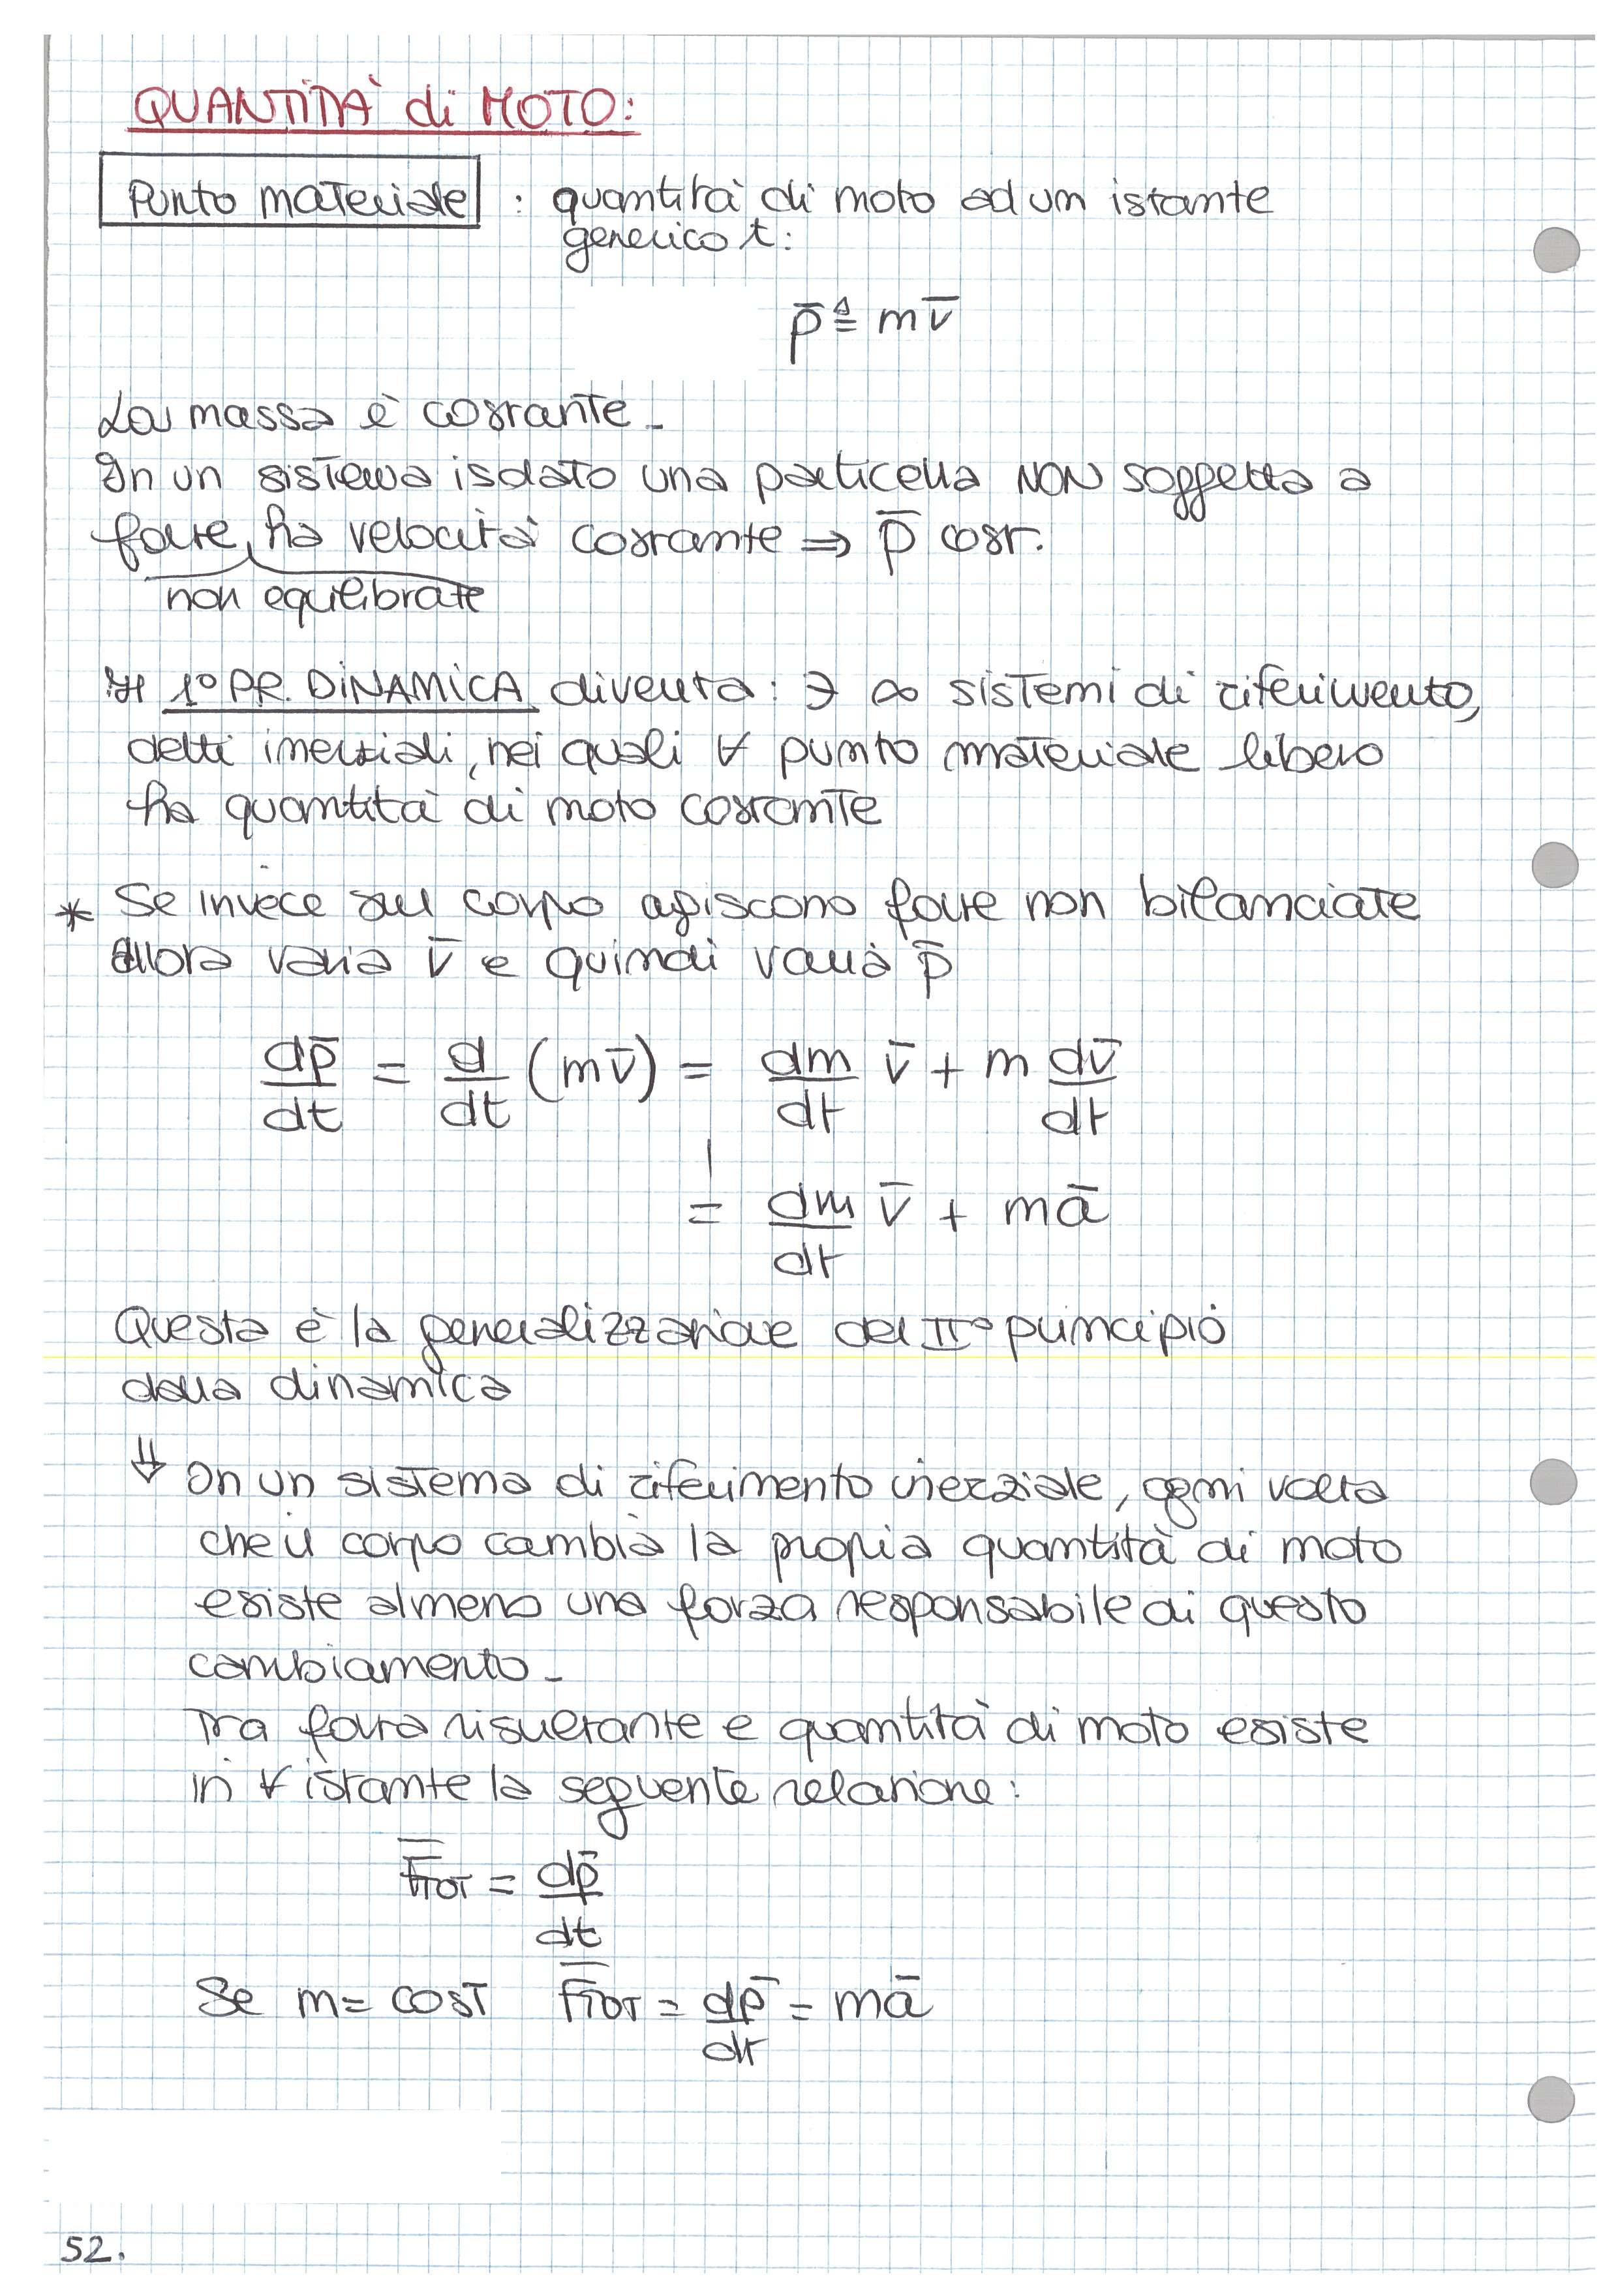 QUANTITÀ di MOTO:
Punto materiale : quantità di moto ad un istante
generico t:
p̄ ≜ m v̄
La massa è costante.
In un sistema isolato una particella NON soggetta a
forze, ha velocità costante ⇒ p̄ cost.
non equilibrate
Il 1° PR. DINAMICA diventa: ∃ ∞ sistemi di riferimento,
detti inerziali, nei quali ∀ punto materiale libero
ha quantità di moto costante
* Se invece sul corpo agiscono forze non bilanciate
allora varia v̄ e quindi varia p̄
dp̄/dt = d/dt (m v̄) = dm/dt v̄ + m dv̄/dt
= dm/dt v̄ + m ā
Questa è la generalizzazione del II° principio
della dinamica
⇓ In un sistema di riferimento inerziale, ogni volta
che il corpo cambia la propria quantità di moto
esiste almeno una forza responsabile di questo
cambiamento.
Tra forza risultante e quantità di moto esiste
in ∀ istante la seguente relazione:
F̄TOT = dp̄/dt
Se m = cost F̄TOT = dp̄/dt = m ā
52.